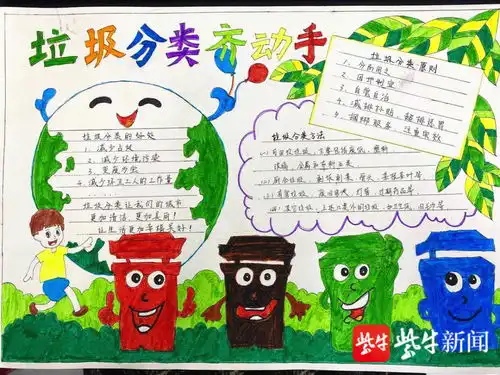 垃圾分类齐动手
垃圾分类原则
1、分而用之
2、因地制宜
3、自觉自治
4、减排补贴,超排惩罚
5、捆绑服务,注重实效
垃圾分类的好处
1、减少占地
2、减少环境污染
3、变废为宝
4、减少环卫工人的工作量
垃圾分类让我们的城市
更加清洁,更加美丽!
让生活更加幸福美好!
垃圾分类方法
(1)可回收垃圾,主要包括废纸、塑料、
玻璃、金属和布料五类
(2)厨余垃圾,剩菜剩饭、骨头、菜根菜叶等
(3)有害垃圾,废旧电池、灯管、过期药品等
(4)其它垃圾,上述几类外的垃圾,如
紫牛 紫牛新闻